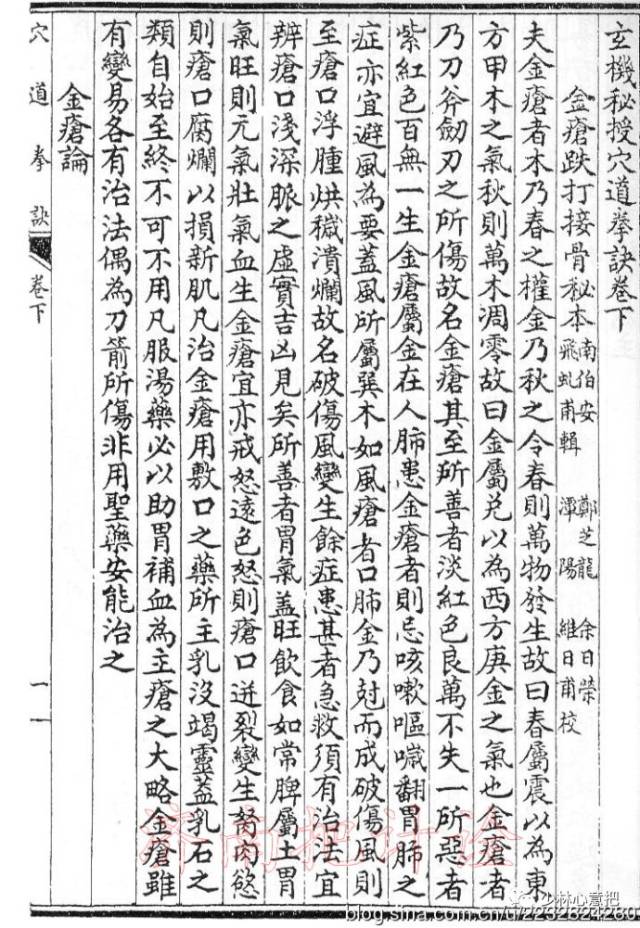 玄機秘授穴道拳訣卷下
金瘡跌打接骨秘本 南伯安 鄭芝龍 余日榮
飛虬甫輯 潭陽 維日甫校
夫金瘡者木乃春之權金乃秋之令春則萬物發生故曰春屬震以為東
方甲木之氣秋則萬木凋零故曰金屬兌以為西方庚金之氣也金瘡者
乃刀斧劒刃之所傷故名金瘡其至所善者淡紅色良萬不失一所惡者
紫紅色百無一生金瘡屬金在人肺患金瘡者則忌咳嗽嘔噦翻胃肺之
症亦宜避風為要蓋風所屬巽木如風瘡者口肺金乃尅而成破傷風則
至瘡口浮腫烘穢潰爛故名破傷風變生餘症患甚者急救須有治法宜
辨瘡口淺深脈之虛實吉凶見矣所善者胃氣蓋旺飲食如常脾屬土胃
氣旺則元氣壯氣血生金瘡宜亦戒怒遠色怒則瘡口迸裂變生努肉慾
則瘡口腐爛以損新肌凡治金瘡用敷口之藥所主乳没竭靈蓋乳石之
類自始至終不可不用凡服湯藥必以助胃補血為主瘡之大略金瘡雖
有變易各有治法偶為刀箭所傷非用聖藥安能治之
金瘡論
穴道拳訣 卷下 一一
少林心意把
blog.sina.com.cn/u/2232824280